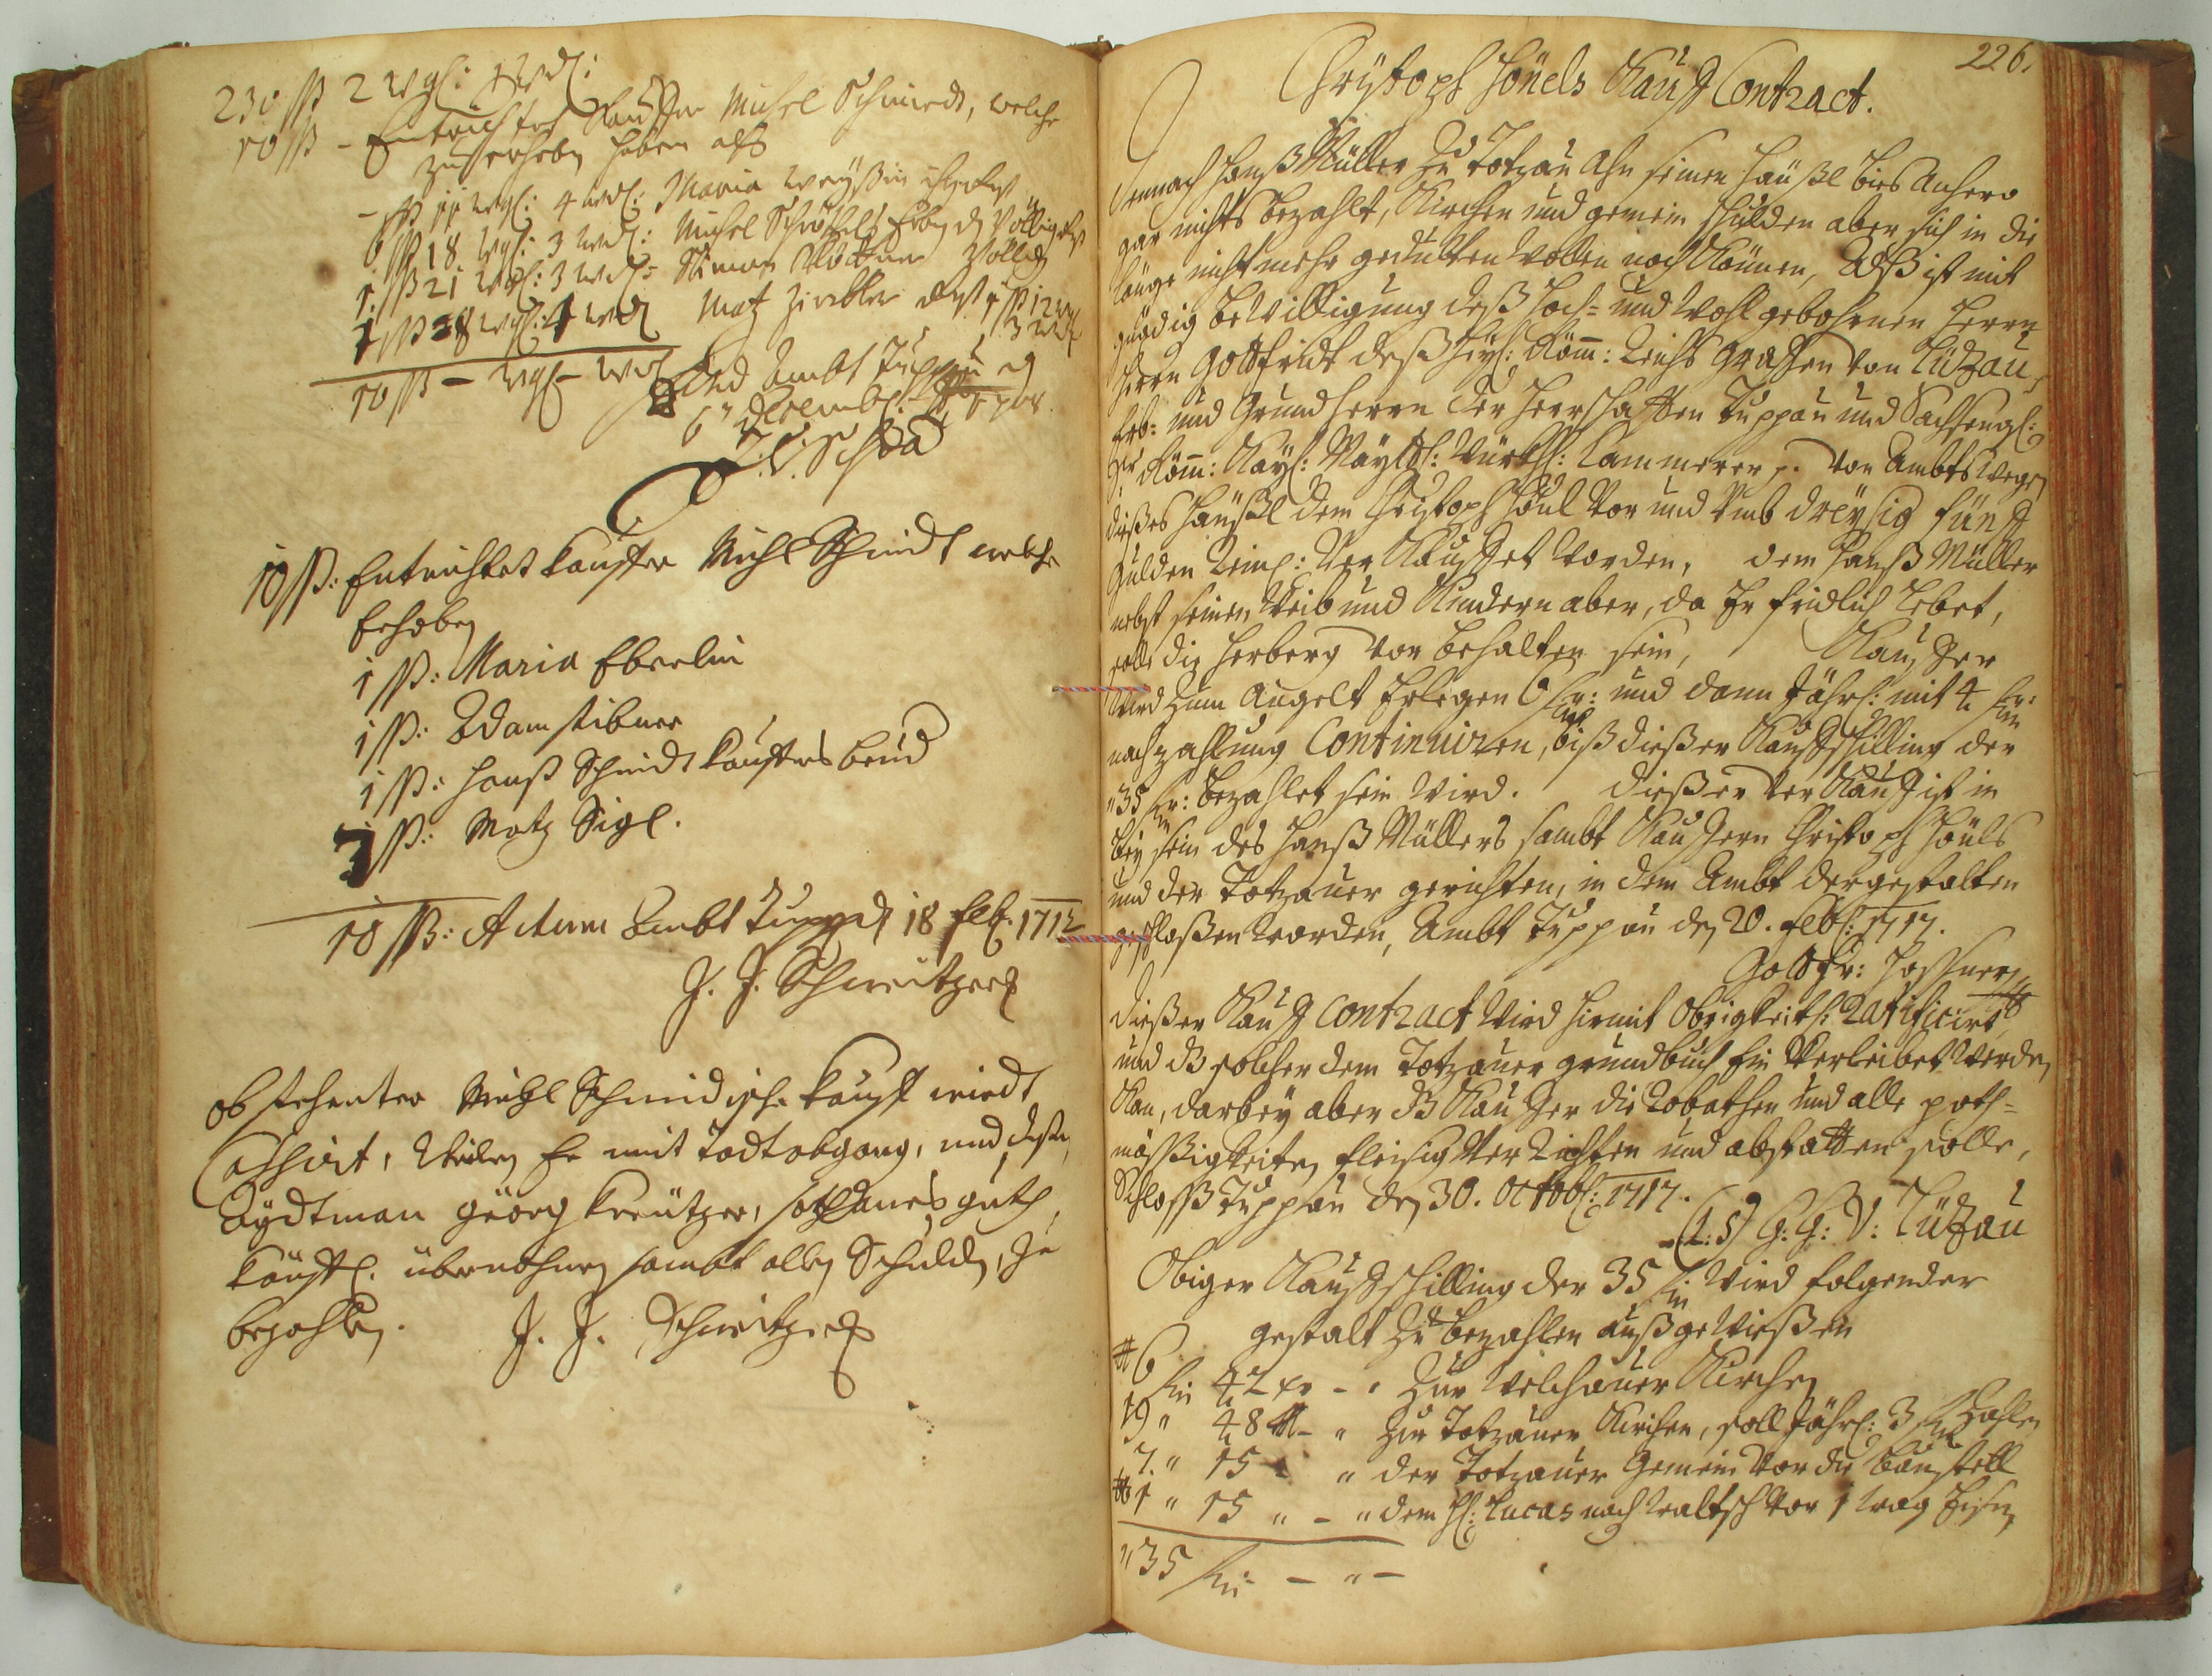 230 ßß 2 wgl: 4 wdl:
10 ßß – Entrichtet Kauffer Michel Schmiedt, welche
zu erheben haben alß
– ßß 11 wgl: 4 wdl: Maria
6 ßß 18 wgl: 3 wdl: Michel Erben
1 ßß 21 wgl: 3 wdl: Simon völlig
1 ßß 18 wgl: 4 wdl Matz
10 ßß – wgl – wdl Ambt Tuppau
6 Decemb:
10 ßß: Entrichtet Kauffer Michl Schmidt welche
Erhoben
1 ßß: Maria Eberlin
1 ßß: Adam Stibner
1 ßß: Hanß Schmidt Kauffers brud
7 ßß: Matz Sigl.
10 ßß: Actum Ambt Tuppau d 18 Feb: 1712
J. J. Schmitzer
Obstehenter Michl Schmidische Kauff wirdt
Cassirt, weilen Er mit Todt abgang, und deßen
Aydtman Geörg Kreützer, sothanes guth
käuffl. übernohmen sambt allen Schulden, zu
bezahlen. J. J. Schmitzer
226.
Christoph Hönels Kauff Contract.
Demnach Hanß Müller zu Totzau ahn seinen häußl bies anhero
gar nichts bezahlt, Kirchen und gemein schulden aber sich in die
länge nicht mehr gedulten wollen noch können, Alß ist mit
gnädig bewilligung deß Hoch- und Wohlgebohrnen Herrn
Herrn Gottfridt deß Heyl: Röm: Reichs Graffen von Lützau,
Erb- und Grundherrn der Herrschafften Tuppau und Sachsengl:
der Röm: Kayl: Mayttl: Würckl: Cammerer p. von Ambts wegen
dießes häußl dem Christoph Hönl vor und umb dreysig fünff
Gulden Reinl: ver Kauffet worden, dem Hanß Müller
nebst seinen Weib und Kindern aber, da Er fridlich lebet,
solle die herberg vor behalten sein, Kauffer
wird zum Angelt Erlegen 6 fl: und dann Jährl: mit 4 fl:
nachzahlung Continuiren, biß dießer Kauffschilling der
"35 fl: bezahlet sein wird. dießer ver Kauff ist in
bey sein des Hanß Müllers sambt Kauffern Christoph Hönls
und der Totzauer gerichten, in dem Ambt dergestalten
geschloßen worden, Ambt Tuppau den 20. Feb: 1717.
Gottfr: Hoffner
dießer Kauff Contract wird hiemit Obrigkeitl: Ratificirt
und daß solcher dem Totzauer grundbuch Ein Verleibet werden
Kan, darbey aber daß Kauffer die Robathen und alle poth-
mäßigkeiten fleisig Verrichten und abstatten solle,
Schloß Tuppau den 30. Octobl: 1717.
(L:S) G: G: V: Lützau
Obiger Kauffschilling der 35 fl: wird folgender
gestalt zu bezahlen außgewießen
6 fl 42 xr – " Zur Welchauer Kirchen
19 " 48 – " Zur Totzauer Kirchen, soll Jährl: 3 fl zahlen
7 " 15 " der Totzauer Gemein vor die baustell
1 " 15 " – " dem H: Lucas nach Waltsch vor 1 wag Eißen
"35 fl – " –